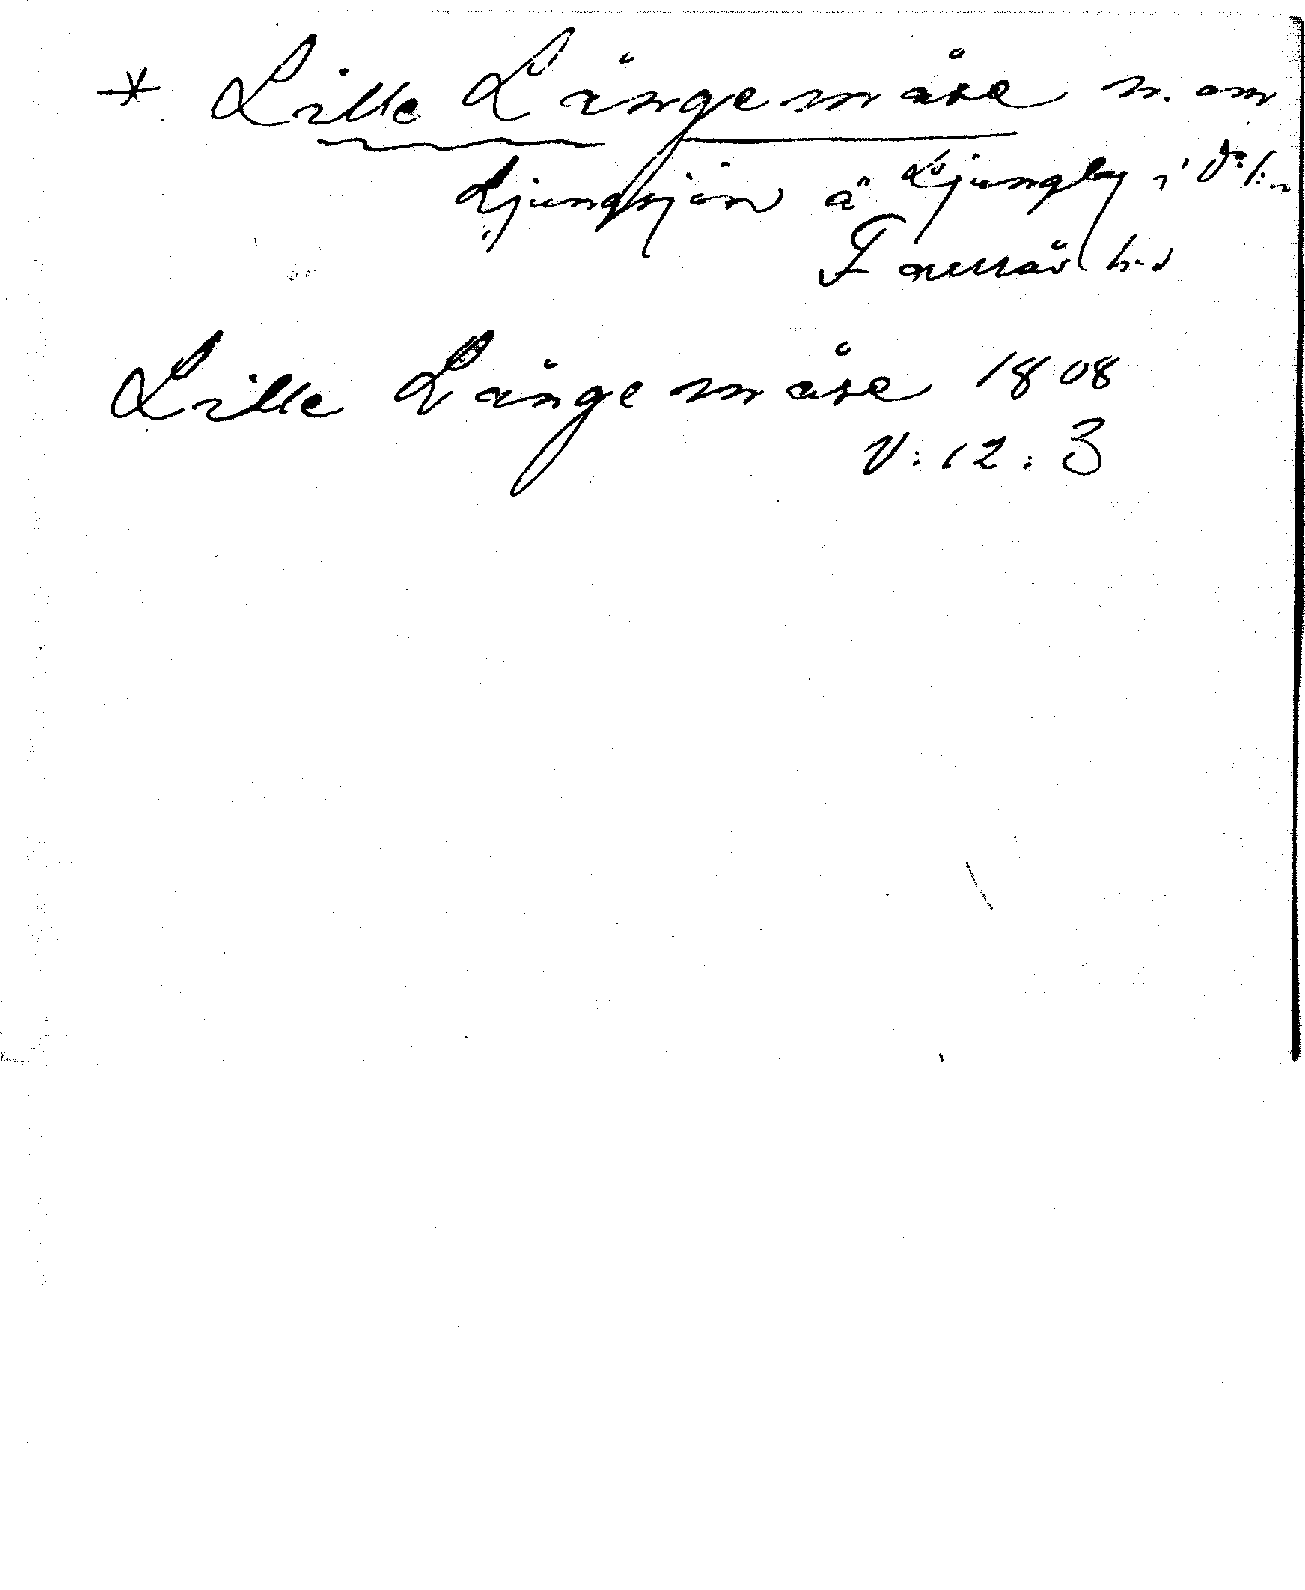 * Lille Långemåse n. om
Ljungsjön å Ljungby i
Faurås hd
Lille Långemåse 1808
V:12:3